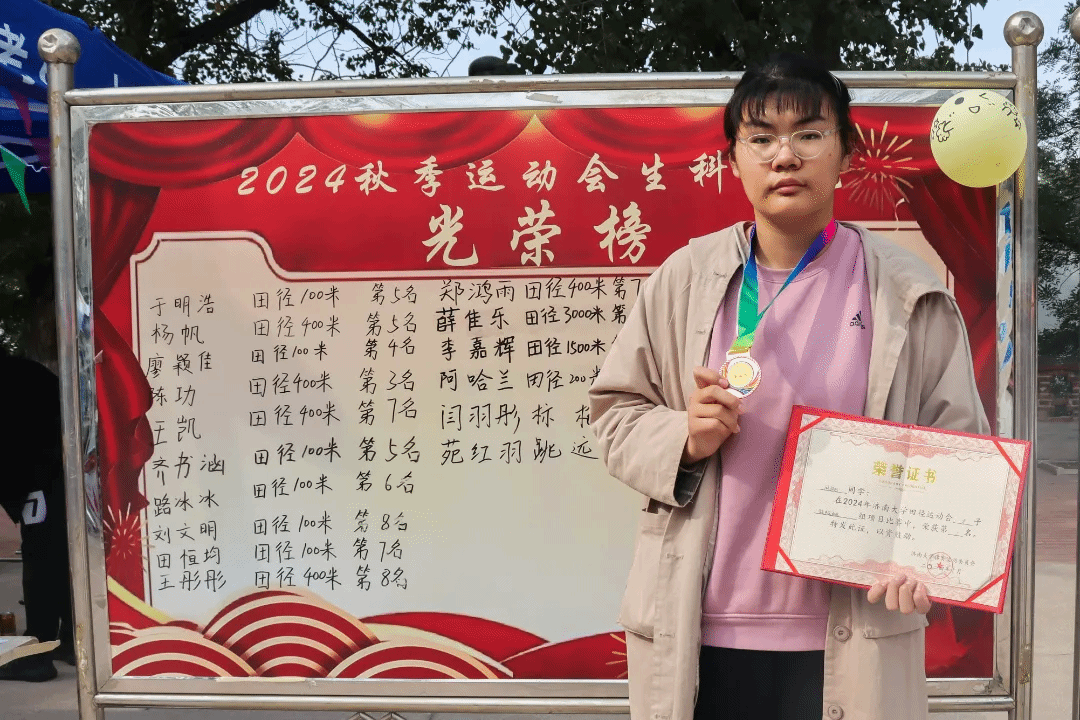 2024秋季运动会生科
光荣榜
于明浩 田径100米 第5名
杨帆 田径400米 第5名
廖颖佳 田径100米 第4名
陈功 田径400米 第3名
王凯 田径400米 第7名
齐书涵 田径100米 第5名
路冰冰 田径100米 第6名
刘文明 田径100米 第8名
田恒均 田径100米 第7名
王彤彤 田径400米 第8名
郑鸿雨 田径400米 第7
薛佳乐 田径3000米 第
李嘉辉 田径1500米
阿哈兰 田径200米
闫羽彤 标
苑红羽 跳远
adidas
荣誉证书
同学:
在2024年济南大学田径运动会 子
组项目比赛中,荣获第 名。
特发此证,以资鼓励。